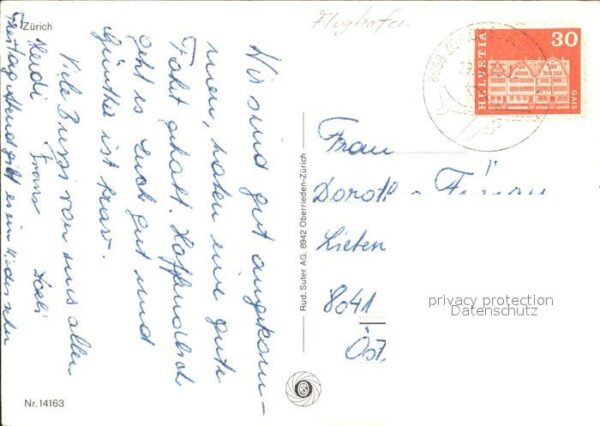 Zürich
Flughafen
Wir sind gut angekom-
men, haben eine gute
Fahrt gehabt. Hoffentlich
geht es Euch gut und
Günther ist brav.
Viele Bussi von uns allen
Heidi
Freitag Abend gibt es ein
Nr. 14163
Rud. Suter AG, 8942 Oberrieden-Zürich
HELVETIA
30
GAIS
Frau
Lieten
8041
Öst.
privacy protection
Datenschutz